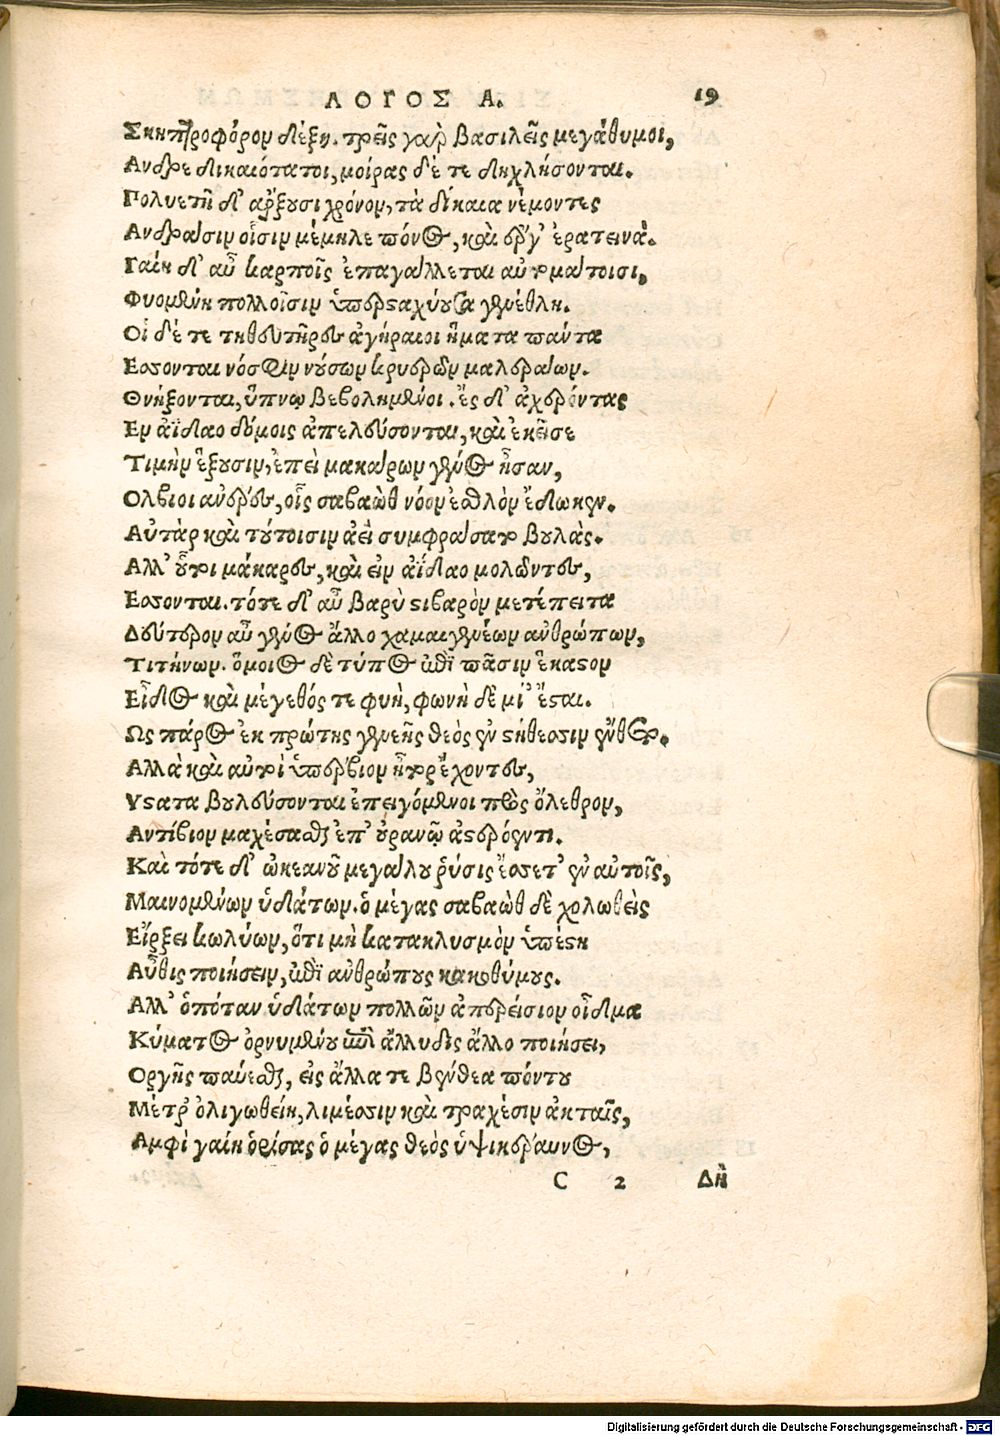 ΛΟΓΟΣ Α. 19
Σκηπτροφόρον δέξη. τρεῖς γὰρ βασιλεῖς μεγάθυμοι,
Ανδρε δικαιότατοι, μοίρας δέ τε δηχλήσονται.
Πολυετῆ δ' ἄρξουσι χρόνον, τὰ δίκαια νέμοντες
Ανδράσιν οἷσιν μέμηλε πόνος, καὶ ἔργ' ἐρατεινά.
Γαίη δ' αὖ καρποῖς ἐπαγάλλεται αὐτομάτοισι,
Φυομένη πολλοῖσιν ὑπερσταχύουσα γενέθλη.
Οἱ δέ τε τηθευτῆρες ἀγήραοι ἤματα πάντα
Εσσονται νόσφιν νούσων κρυερῶν μαλεράων.
Θνήξονται, ὕπνῳ βεβολημένοι. ἐς δ' ἀχέροντας
Εν ἀΐδαο δόμοις ἀπελεύσονται, καὶ ἐκεῖσε
Τιμὴν ἕξουσιν, ἐπεὶ μακάρων γένος ἦσαν,
Ολβιοι ἄνδρες, οἷς σαβαὼθ νόον ἐσθλὸν ἔδωκεν.
Αὐτὰρ καὶ τούτοισιν ἀεὶ συμφράσατο βουλάς.
Αλλ' οὗτοι μάκαρες, καὶ εἰν ἀΐδαο μολόντες,
Εσσονται. τότε δ' αὖ βαρὺ στιβαρὸν μετέπειτα
Δεύτερον αὖ γένος ἄλλο χαμαιγενέων ἀνθρώπων,
Τιτήνων. ὅμοιος δὲ τύπος ἐπὶ πᾶσιν ἕκαστον
Εἶδος καὶ μέγεθός τε φυὴ, φωνὴ δὲ μί' ἔσται.
Ως πάρος ἐκ πρώτης γενεῆς θεὸς ἐν στήθεσσιν ἔνθετο.
Αλλὰ καὶ αὐτοὶ ὑπέρβιον ἦτορ ἔχοντες,
Υστατα βουλεύσονται ἐπειγόμενοι πρὸς ὄλεθρον,
Αντίβιον μαχέσασθαι ἐπ' οὐρανῷ ἀστερόεντι.
Καὶ τότε δ' ὠκεανοῦ μεγάλου ῥύσις ἔσσετ' ἐν αὐτοῖς,
Μαινομένων ὑδάτων. ὁ μέγας σαβαὼθ δὲ χολωθεὶς
Εἴρξει κωλύων, ὅτι μὴ κατακλυσμὸν ὑπέστη
Αὖθις ποιήσειν, ἐπὶ ἀνθρώπους κακοθύμους.
Αλλ' ὁπόταν ὑδάτων πολλῶν ἀπερείσιον οἶδμα
Κύματος ὀρνυμένου ἐπὶ ἄλλυδις ἄλλο ποιήσει,
Οργῆς παύεσθαι, εἰς ἄλλα τε βένθεα πόντου
Μέτρ' ὀλιγωθείη, λιμέσσιν καὶ τραχέσιν ἀκταῖς,
Αμφὶ γαίῃ ὁρίσας ὁ μέγας θεὸς ὑψικέραυνος,
C 2 Δὴ
Digitalisierung gefördert durch die Deutsche Forschungsgemeinschaft - DFG